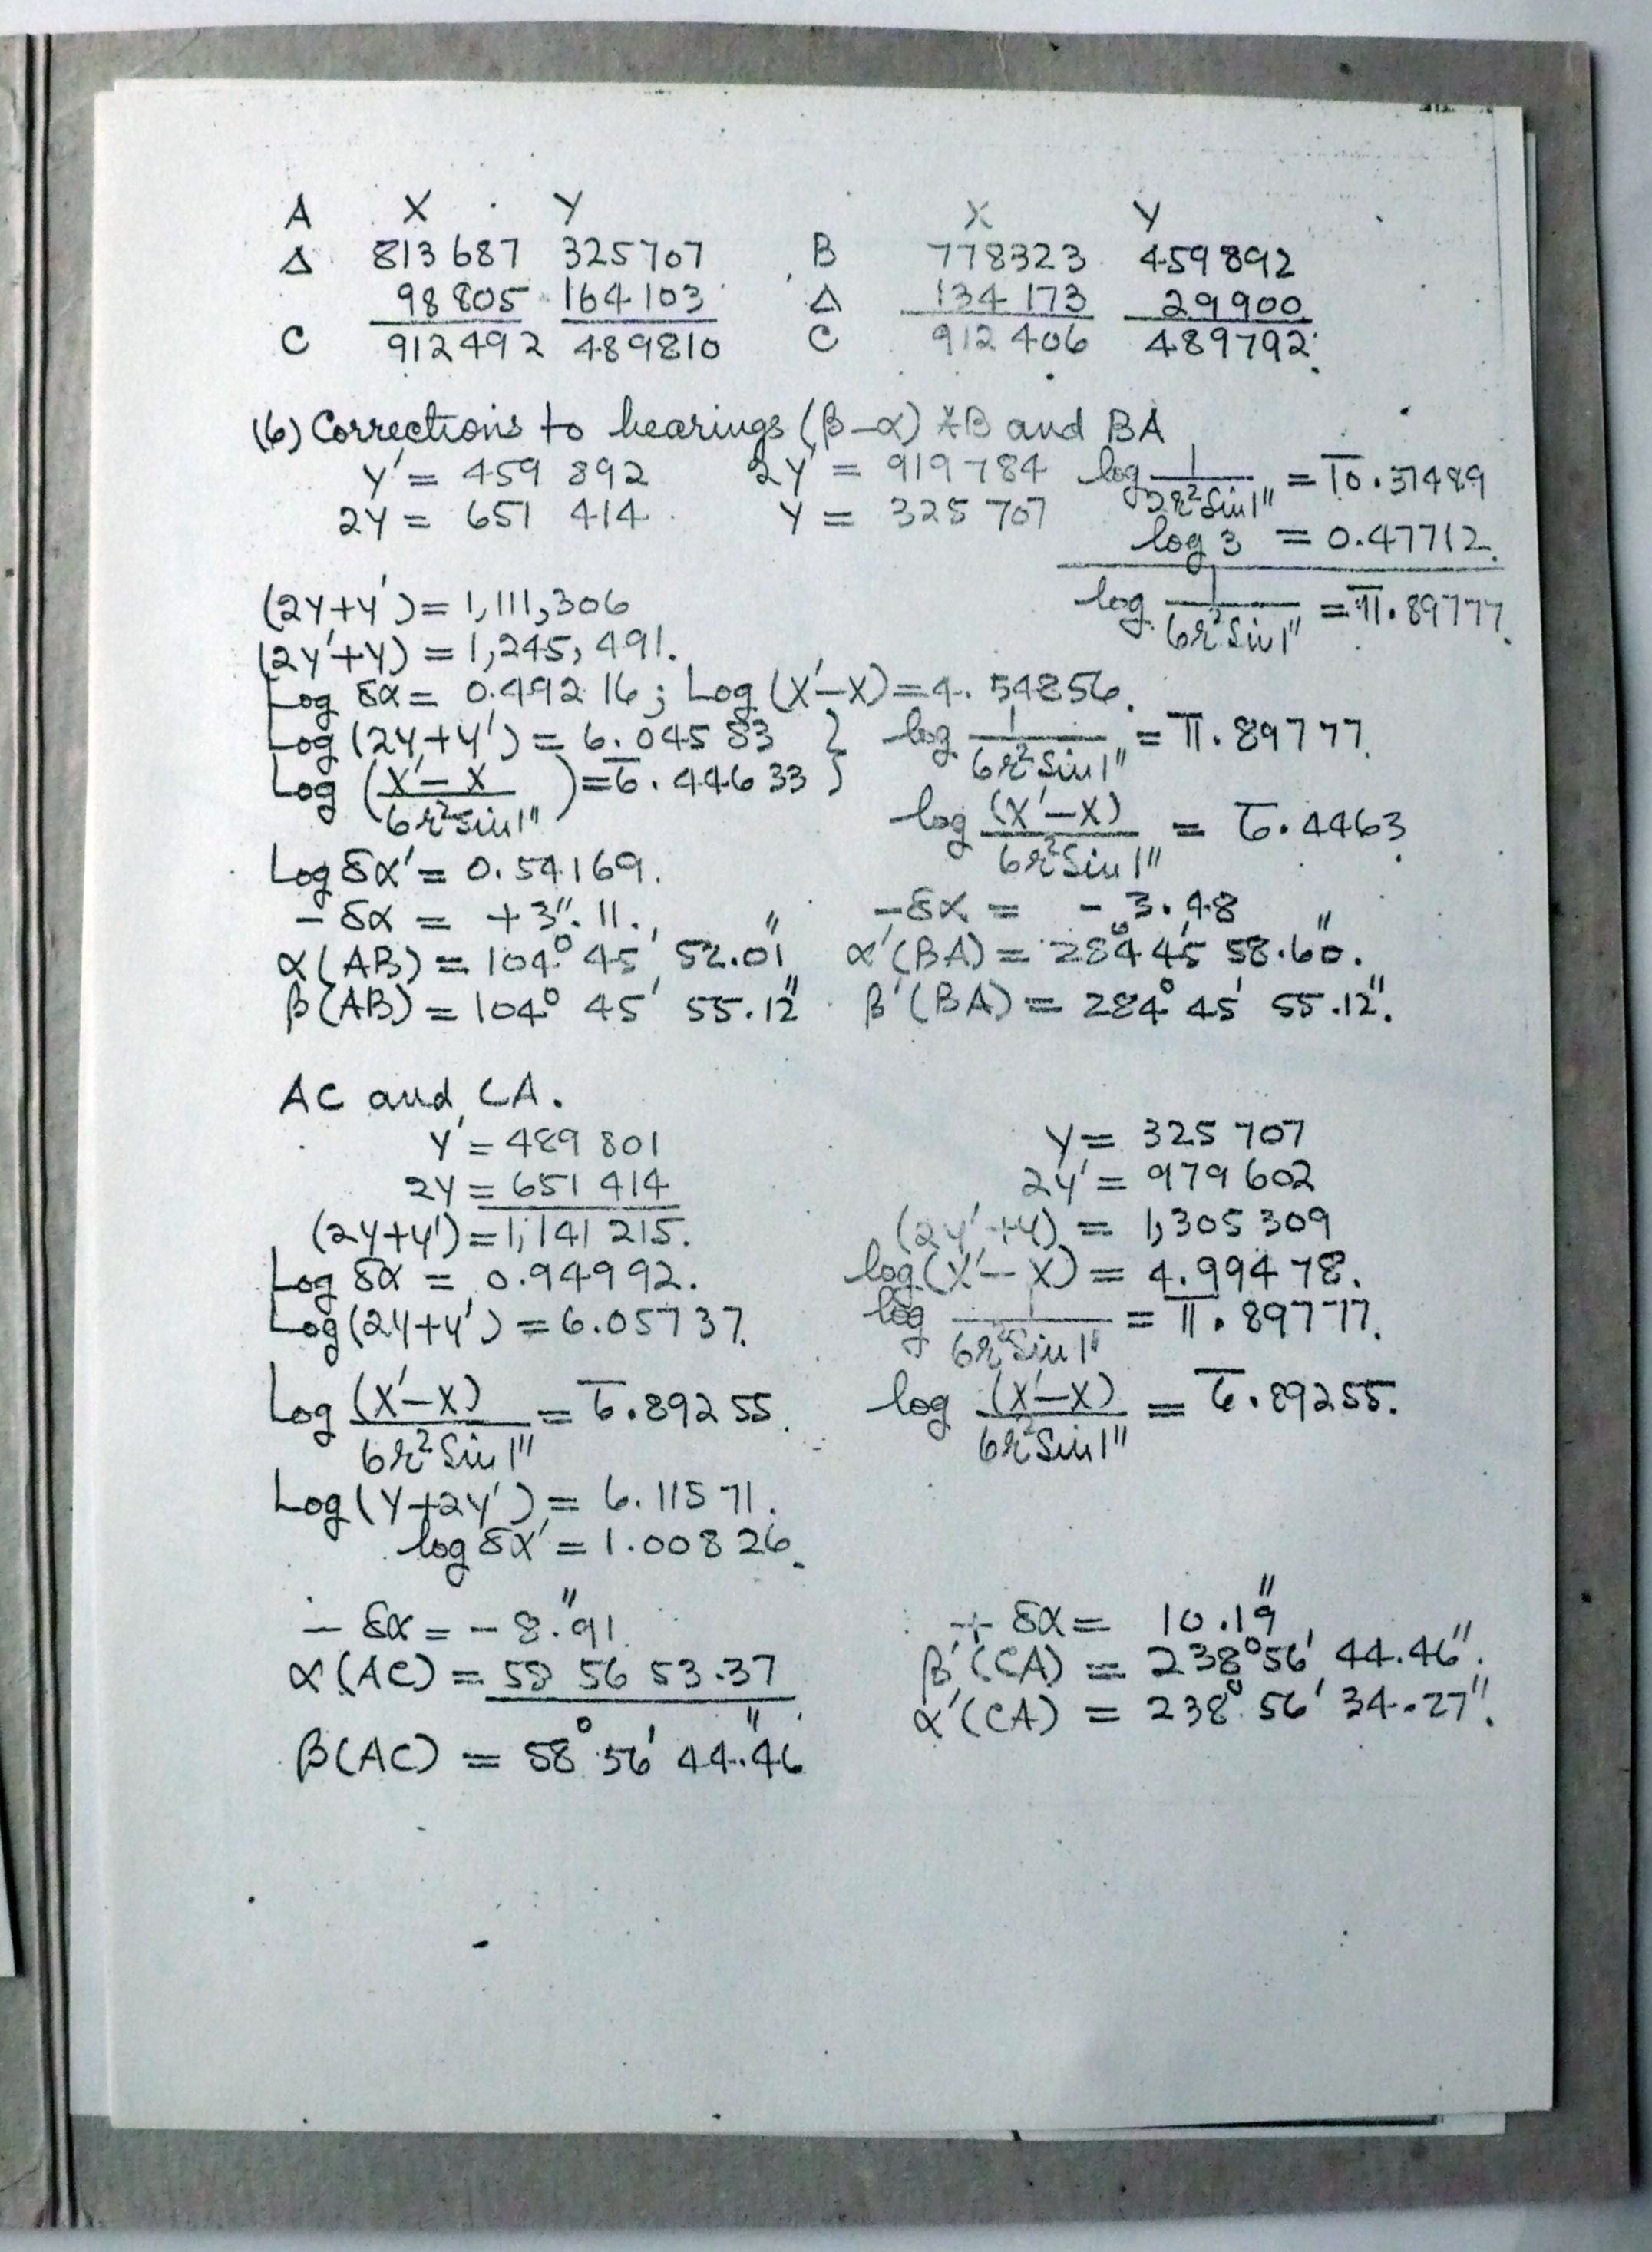 A X Y X Y
Δ 813 687 325707 B 778323 459 892
98 805 164 103 Δ 134 173 29 900
C 912 492 489810 C 912 406 489792
(6) Corrections to bearings (β-α) AB and BA
Y' = 459 892 2Y' = 919 784 log 1/2r² Sin 1" = 1̅0̅.37489
2Y = 651 414 Y = 325 707 log 3 = 0.47712
(2Y+Y') = 1,111,306 log 1/6r² Sin 1" = 1̅1̅.89777
(2Y'+Y) = 1,245,491.
Log δα = 0.492 16; Log (X'-X) = 4.54856.
Log (2Y+Y') = 6.045 83 } log 1/6r² Sin 1" = 1̅1̅.89777
Log (X'-X/6r² Sin 1") = 6̅.446 33 }
log (X'-X)/6r² Sin 1" = 6̅.4463
Log δα' = 0.54169.
-δα = +3".11., -δα = - 3.48
α(AB) = 104° 45' 52.01" α'(BA) = 284° 45' 58.60".
β(AB) = 104° 45' 55.12" β'(BA) = 284° 45' 55.12".
AC and CA.
Y' = 489 801 Y = 325 707
2Y = 651 414 2Y' = 979 602
(2Y+Y') = 1,141 215. (2Y'+Y) = 1,305 309
Log δα = 0.94992. log (X'-X) = 4.994 78.
Log (2Y+Y') = 6.05737. log 1/6r² Sin 1" = 1̅1̅.89777.
Log (X'-X)/6r² Sin 1" = 6̅.892 55. log (X'-X)/6r² Sin 1" = 6̅.89255.
Log (Y+2Y') = 6.11571.
log δα' = 1.00826.
- δα = - 8".91. + δα = 10.19"
α(AC) = 58 56 53.37 β'(CA) = 238° 56' 44.46".
α'(CA) = 238° 56' 34.27".
β(AC) = 58° 56' 44.46"